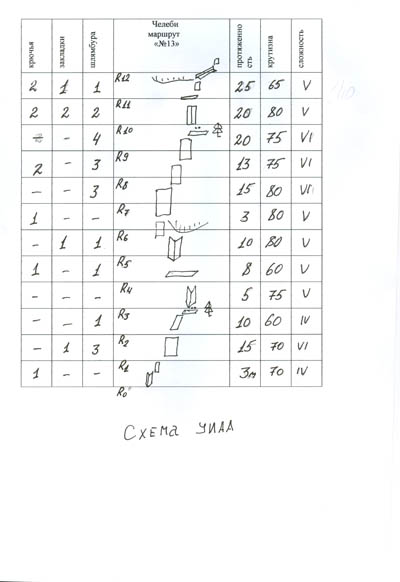 крючья закладки шлямбура Челеби маршрут «№13» протяженно сть крутизна сложность
2 1 1 R12 25 65 V
2 2 2 R11 20 80 V
- 4 R10 20 75 VI
2 - 3 R9 13 75 VI
- - 3 R8 15 80 VI
1 - - R7 3 80 V
- 1 1 R6 10 80 V
1 - 1 R5 8 60 V
- - - R4 5 75 V
- - 1 R3 10 60 IV
- 1 3 R2 15 70 VI
1 - - R1 3м 70 IV
R0
СХЕМА УИАА